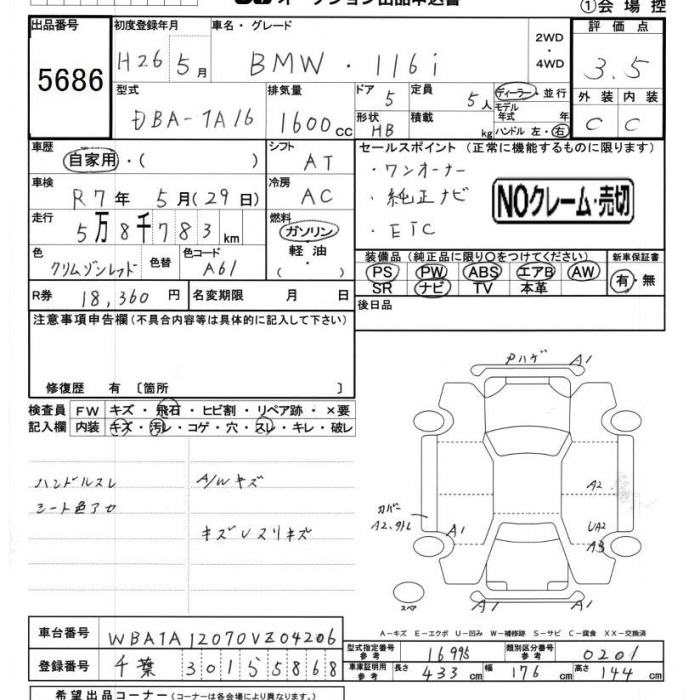 ①会場控
出品番号 初度登録年月 車名・グレード 2WD・4WD 評価点
5686 H26 5月 BMW・116i 3.5
型式 排気量 ドア 5 定員 5人 ディーラー・並行 外装 内装
DBA-1A16 1600cc 形状 HB 積載 kg モデル年式 年 C C
ハンドル 左・右
車歴 シフト セールスポイント (正常に機能するものに限ります)
自家用・( ) AT ・ワンオーナー
車検 冷房 ・純正ナビ NOクレーム・売切
R7年 5月(29日) AC ・ETC
走行 燃料
5万8千783km ガソリン・軽油・( )
色 色替 色コード 装備品 (純正品に限り○をつけてください) 新車保証書
クリムゾンレッド A61 PS PW ABS エアB AW 有・無
SR ナビ TV 本革
R券 18,360円 名変期限 月 日 後日品
注意事項申告欄 (不具合内容等は具体的に記入して下さい)
修復歴 有 〔箇所 〕
検査員 FW キズ・飛石・ヒビ割・リペア跡・×要
記入欄 内装 キズ・汚レ・コゲ・穴・スレ・キレ・破レ
ハンドルスレ A/Wキズ
シート色アカ
キズUスリキズ
Pハゲ A1
A1
A2
カバー
A2、外レ
A1 UA2
A3
スペア
A-キズ E-エクボ U-凹み W-補修跡 S-サビ C-腐食 XX-交換済
車台番号 WBA1A12070VZ04206
登録番号 千葉 301 55868
型式指定番号 参考 16995 類別区分番号 参考 0201
車庫証明用 参考 長さ 433cm 幅 176cm 高さ 144cm
希望出品コーナー (コーナーは各会場により異なります。)